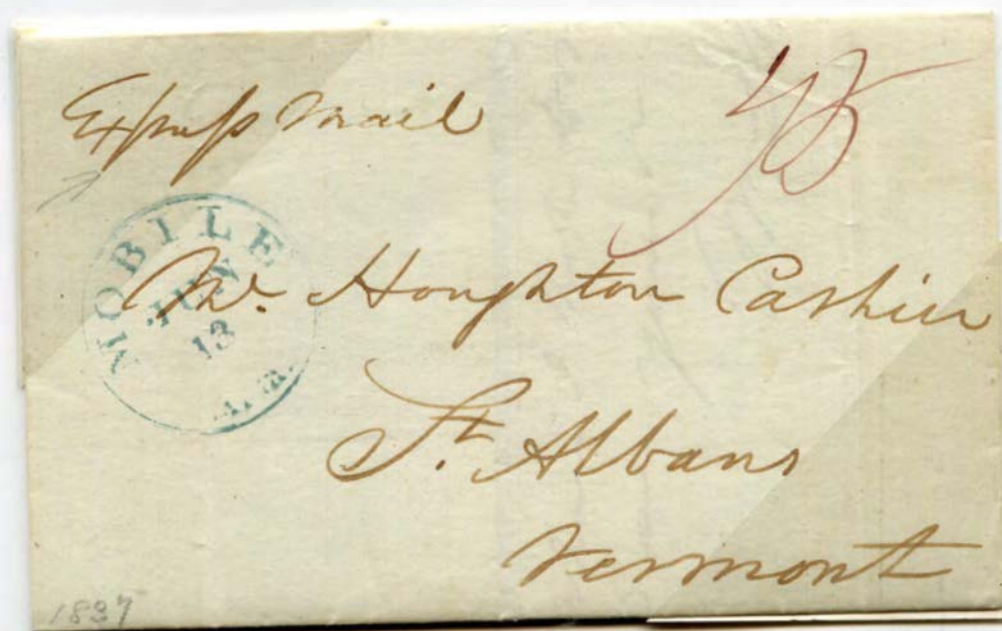 Express Mail
75
MOBILE
JUN
13
A.M.
Mr. Houghton Cashier
St. Albans
Vermont
1837